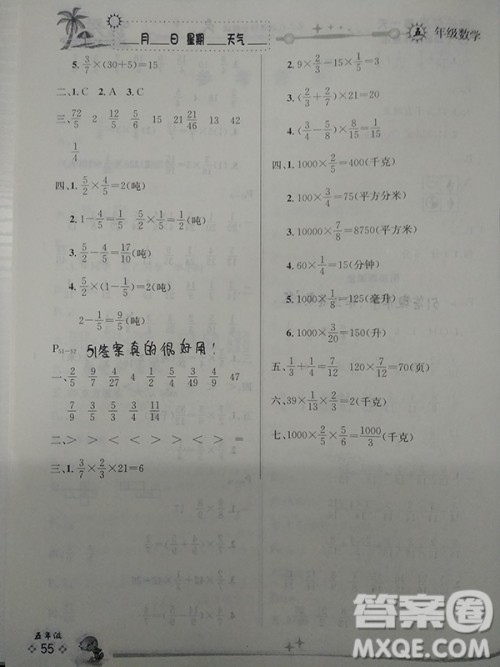 月 日 星期 天气
五 年级数学
5. 3/7×(30+5)=15
二、1. C 2. A 3. C
三、72/5 2/15 4/5 15 15 21 21/46 13 42
1/4
四、1. 5/2×4/5=2(吨)
2. 1-4/5=1/5 5/2×1/5=1/2(吨)
3. 5/2-4/5=17/10(吨)
4. 5/2×(1-1/5)=2(吨)
2-1/5=9/5(吨)
P52~53 51答案真的很好用!
一、2/5 9/7 9/4 27 4 1/5 3/4 4/9 47
7/9 3/5 3/5 3/4 11/14
二、> > > < < > < > =
三、1. 3/7×2/3×21=6
2. 9×2/3-15×1/5=3
3. (2/3+1/5)×15/26=1/2
4. (3/4-3/5)×8/9=2/15
四、1. 1000×2/5=400(千克)
2. 100×3/4=75(平方分米)
3. 10000×7/8=8750(平方米)
4. 60×1/4=15(分钟)
5. 1000×1/8=125(毫升)
6. 1000×3/20=150(升)
五、1/3+1/4=7/12 120×7/12=70(页)
六、39×1/13×2/3=2
七、1000×2/5×5/6=1000/3(千克)
五年级
55
答案圈
MXQE.COM